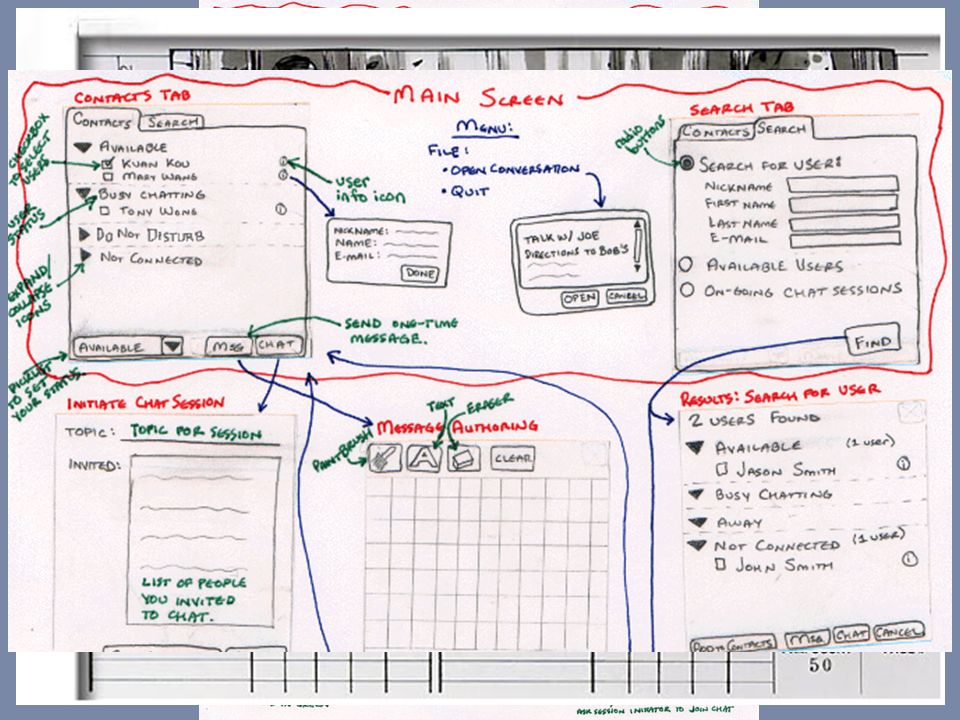 CONTACTS TAB
CONTACTS
SEARCH
AVAILABLE
KUAN KOU
MARY WANG
BUSY CHATTING
TONY WONG
DO NOT DISTURB
NOT CONNECTED
AVAILABLE
MSG
CHAT
CHECKBOX
TO SELECT
USERS
USER
STATUS
EXPAND/
COLLAPSE
ICONS
PICKLIST
TO SET
YOUR STATUS.
MAIN SCREEN
MENU:
FILE:
• OPEN CONVERSATION
• QUIT
USER
INFO ICON
NICKNAME:
NAME:
E-MAIL:
DONE
TALK W/ JOE
DIRECTIONS TO BOB'S
OPEN
CANCEL
SEND ONE-TIME
MESSAGE.
SEARCH TAB
radio
buttons
CONTACTS
SEARCH
SEARCH FOR USER:
NICKNAME
FIRST NAME
LAST NAME
E-MAIL
AVAILABLE USERS
ON-GOING CHAT SESSIONS
FIND
INITIATE CHAT SESSION
TOPIC: TOPIC FOR SESSION
INVITED:
LIST OF PEOPLE
YOU INVITED
TO CHAT.
MESSAGE AUTHORING
PAINTBRUSH
TEXT
ERASER
A
CLEAR
RESULTS: SEARCH FOR USER
2 USERS FOUND
AVAILABLE (1 USER)
JASON SMITH
BUSY CHATTING
AWAY
NOT CONNECTED (1 USER)
JOHN SMITH
ADD TO CONTACTS
MSG
CHAT
CANCEL
50
ASK SESSION INITIATOR TO JOIN CHAT